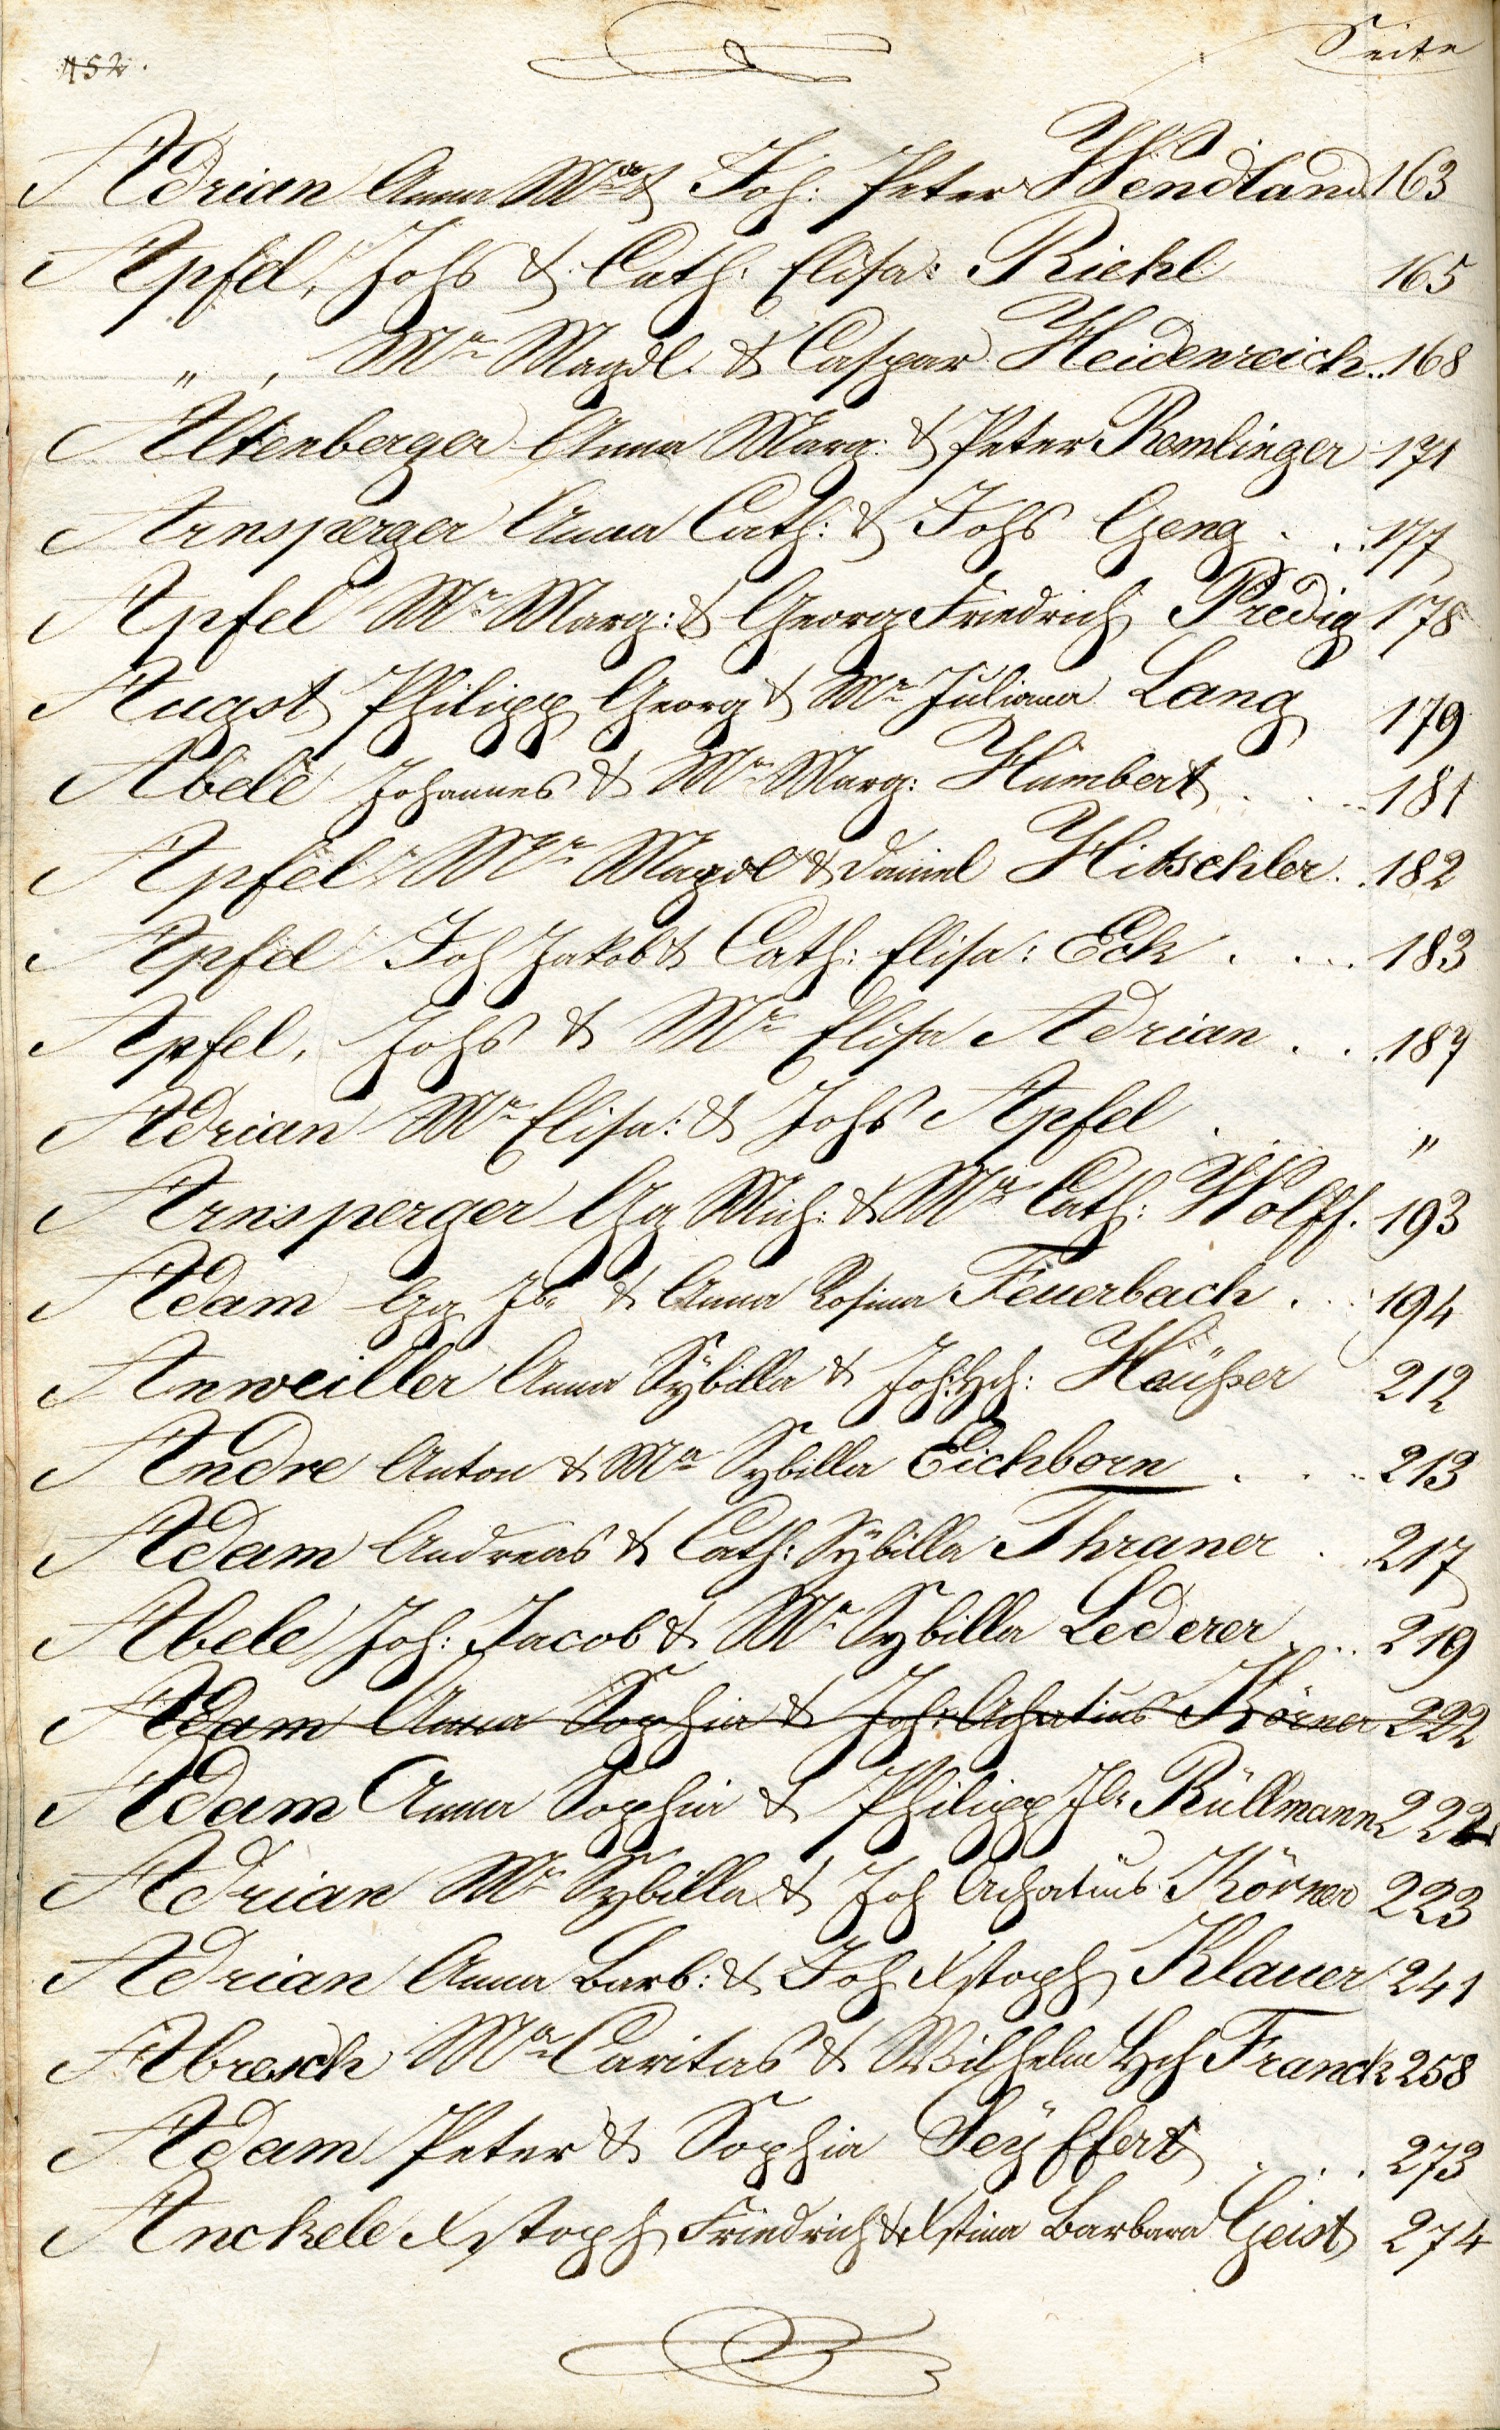 452.
Seite
Adrian Anna Mria & Joh: Peter Wendland 163
Apfel, Johs & Cath. Elisa: Riehl 165
" , Mra Magdl. & Caspar Heidenreich.. 168
Altenberger Anna Marg: & Peter Remlinger 171
Arnsperger Anna Cath: & Johs Geng . . . 177
Apfel Mra Marg: & Georg Friedrich Predig 178
Augst Philipp Georg & Mra Juliana Lang 179
Abele Johannes & Mra Marg: Humbert . . . 181
Apfel Mra Magdl & Daniel Hitschler . . 182
Apfel Joh Jakob & Cath: Elisa: Eck . . . . 183
Apfel, Johs & Mra Elisa Adrian . . . 187
Adrian Mra Elisa: & Johs Apfel . . . "
Arnsperger Gg Mich: & Mra Cath: Wolff. 193
Adam Gg Jb & Anna Rosina Feuerbach . . . 194
Anweiller Anna Sÿbilla & Joh: Hch: Häußer 212
Andre Anton & Mra Sybilla Eichborn . . . . 213
Adam Andreas & Cath: Sÿbilla Thraner . . 217
Abele Joh: Jacob & Mra Sybilla Lederer . . . 219
Adam Anna Sophia & Joh: Achatius Körner 222
Adam Anna Sophia & Philipp Jb Rüllmann 222
Adrian Mra Sybilla & Joh Achatius Körner 223
Adrian Anna Barb: & Joh Xstoph Klauer 241
Abresch Mra Caritas & Wilhelm Hch Franck 258
Adam Peter & Sophia Seÿffert . . . 273
Anckele Xstoph Friedrich & Xstina Barbara Geist 274